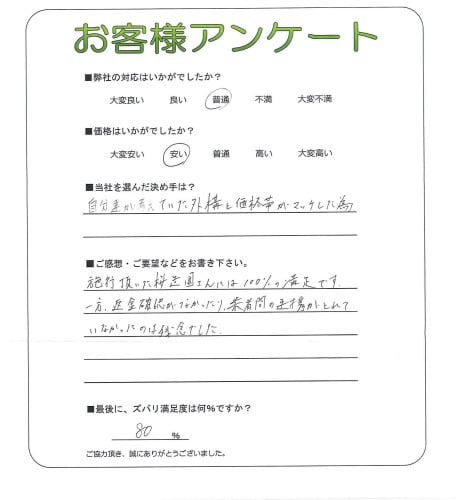 お客様アンケート
■弊社の対応はいかがでしたか?
大変良い 良い 普通 不満 大変不満
■価格はいかがでしたか?
大変安い 安い 普通 高い 大変高い
■当社を選んだ決め手は?
自分達が考えていた外構と価格帯がマッチした為
■ご感想・ご要望などをお書き下さい。
施行頂いた 園さんには100%の満足です。
一方、返金確認がなかったり、業者間の連携がとれて
いなかったのは残念でした。
■最後に、ズバリ満足度は何%ですか?
80 %
ご協力頂き、誠にありがとうございました。